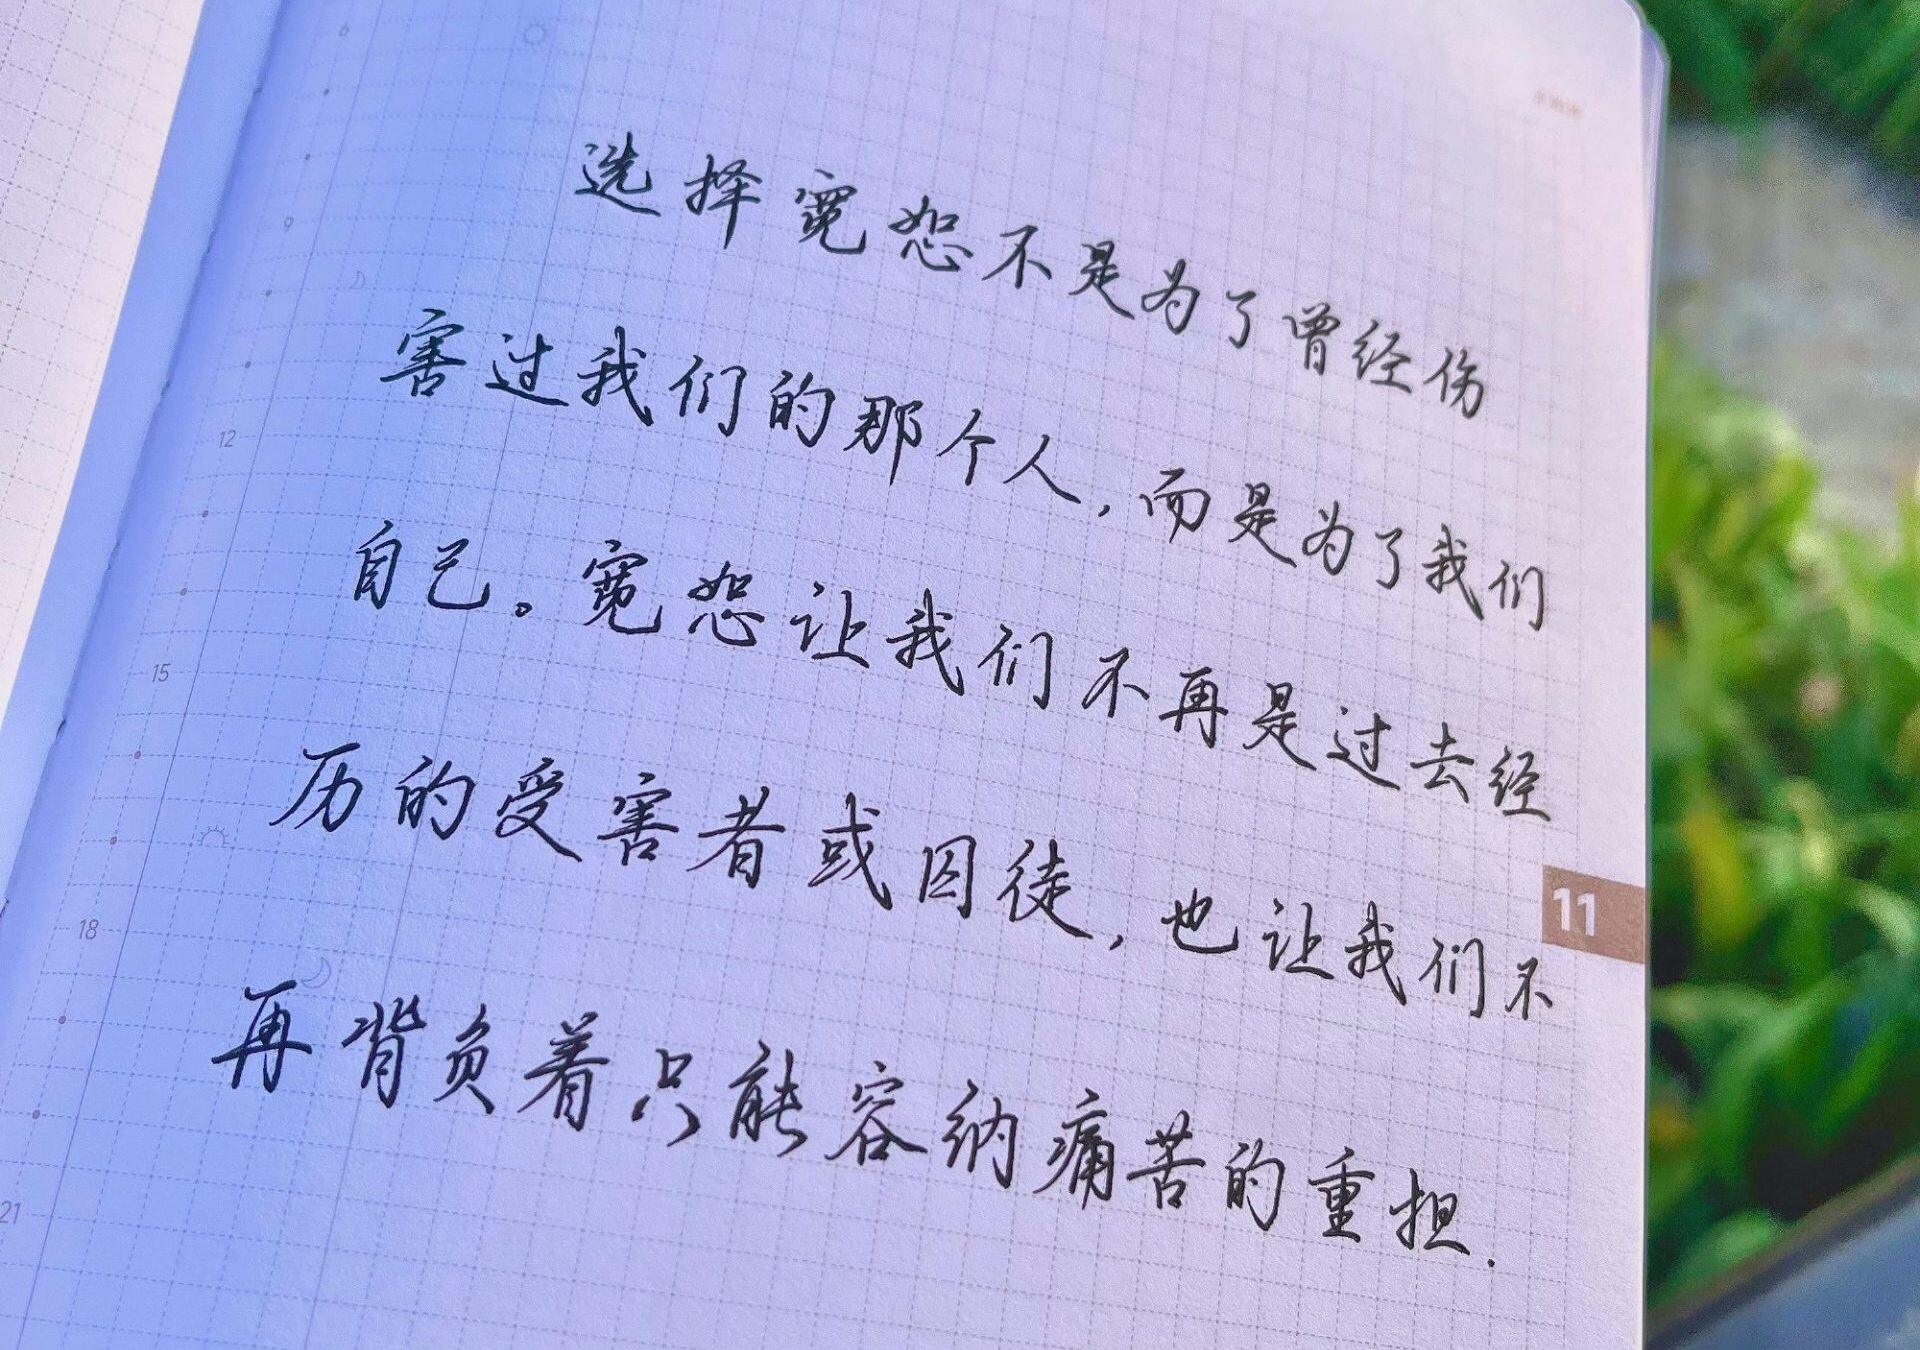 选择宽恕不是为了曾经伤
害过我们的那个人,而是为了我们
自己。宽恕让我们不再是过去经
历的受害者或囚徒,也让我们不
再背负着只能容纳痛苦的重担.
6
9
12
15
18
21
11